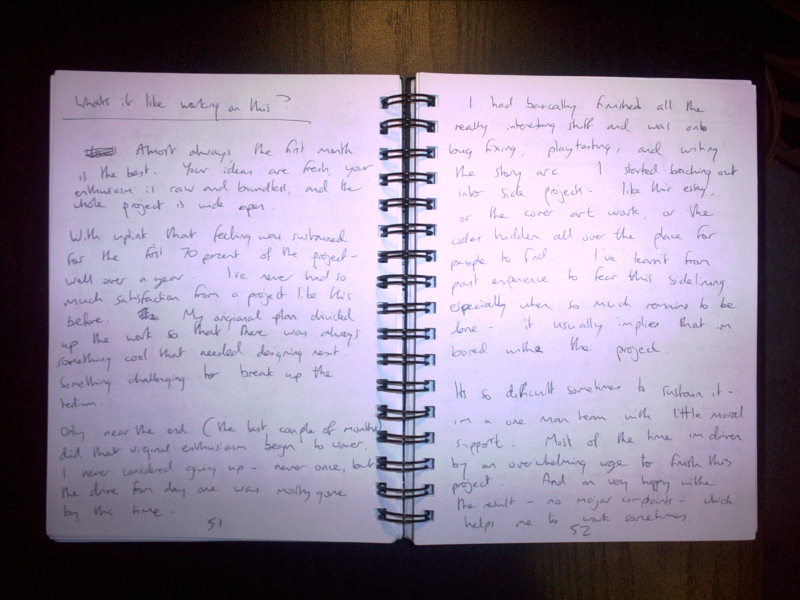 Whats it like working on this?
Almost always the first month
is the best. Your ideas are fresh, your
enthusiasm is raw and boundless, and the
whole project is wide open.
With uplink that feeling was sustained
for the first 70 percent of the project -
well over a year. I've never had so
much satisfaction from a project like this
before. My original plan divided
up the work so that there was always
something cool that needed designing next
something challenging to break up the
tedium.
Only near the end (the last couple of months)
did that original enthusiasm began to waver.
I never considered giving up - never once, but
the drive from day one was mostly gone
by this time.
51
I had basically finished all the
really interesting stuff and was onto
bug fixing, playtesting, and writing
the story arc. I started branching out
into side projects - like this essay,
or the cover art work, or the
codes hidden all over the place for
people to find. I've learnt from
past experience to fear this sidelining,
especially when so much remains to be
done - it usually implies that im
bored with the project.
Its so difficult sometimes to sustain it -
im a one man team with little moral
support. Most of the time im driven
by an overwhelming urge to finish this
project. And am very happy with the
the result - no major complaints - which
helps me to work sometimes.
52